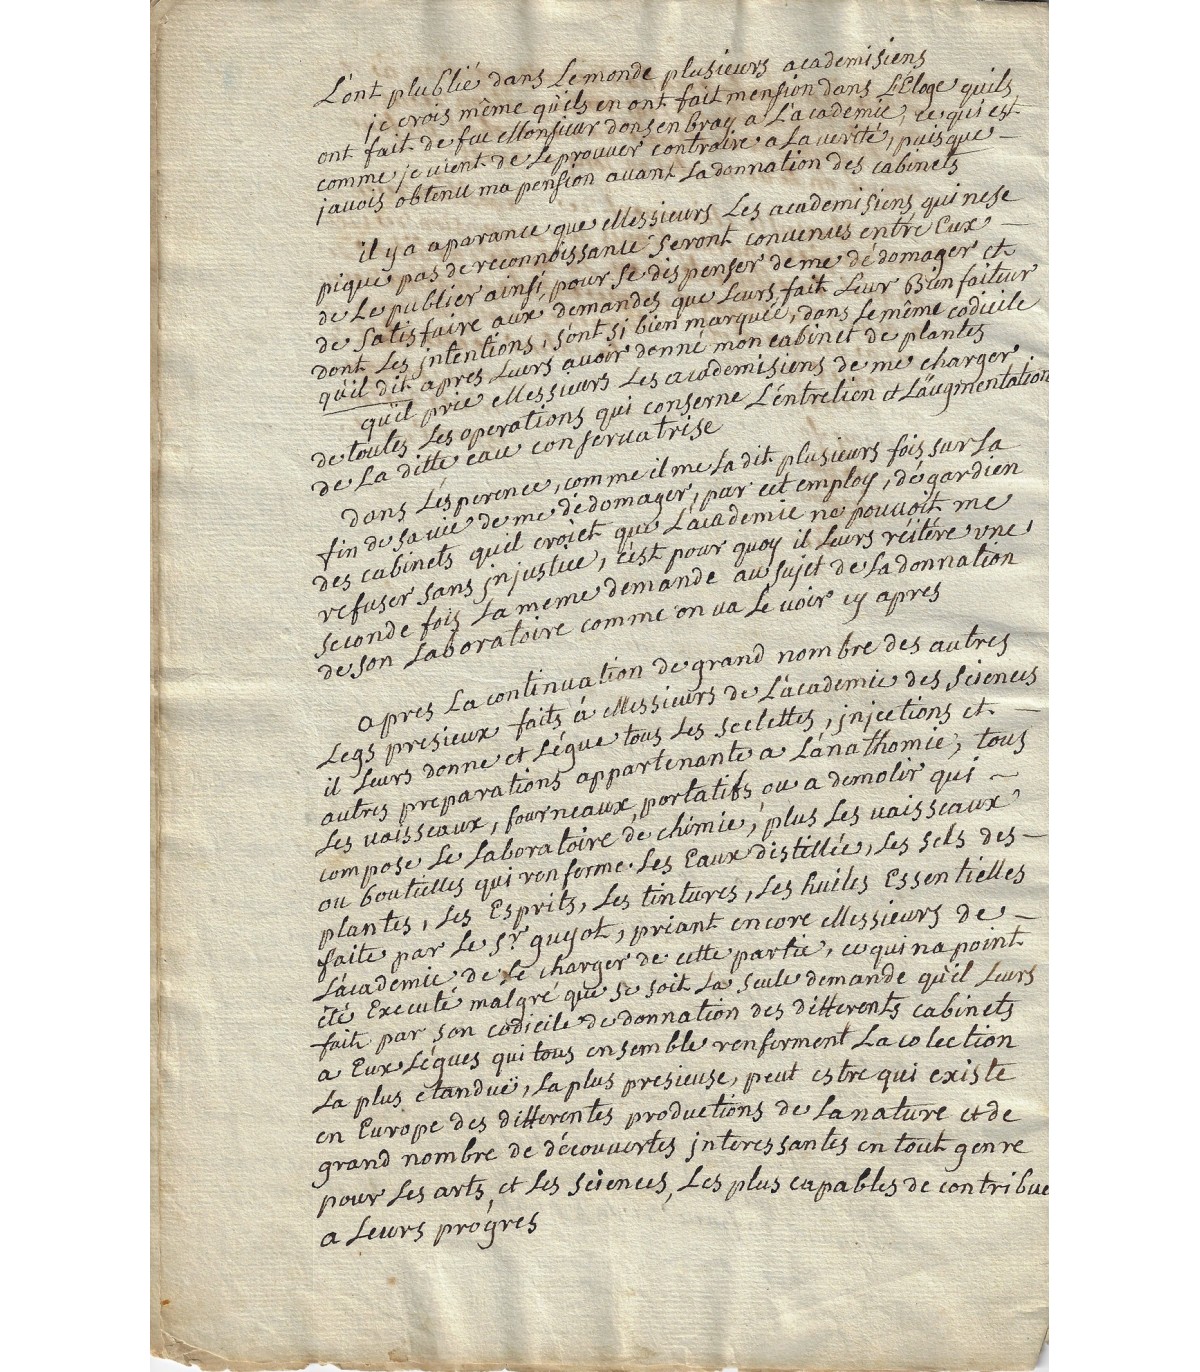 L'ont plublié dans Lemonde plusieurs academisiens
je crois même qu'ils en ont fait mension dans L'Eloge quils
ont fait de fue Monsieur donsenbray a L'academie, ce qui est
comme je vient de Leprouver contraire a La verité, puisque
javois obtenu ma pension avant La donnation des cabinets
il y a aparance que Messieurs Les academisiens qui nese
pique pas de reconnoissance seront convenues entré Eux
de Le publier ainsi, pour se dispenser de me dédomager et
de satisfaire aux demandes que Leurs fait Leur Bienfaiteur
dont Les jntentions, sont si bien marquée, dans Le même codicile
qu'il dit apres Leurs avoir donné mon cabinet de plantes
qu'il prie Messieurs Les academisiens de me charger
de toutes Les operations qui conserne L'entretien et L'augmentation
de La ditte eau conservatrise
dans L'esperence, comme il me La dit plusieurs fois sur La
fin de sa vie de me dédomager, par cet employ, de gardien
des cabinets qu'il croiet que L'academie ne pouvoit me
refuser sans jnjustice, c'est pour quoy il Leurs réitére une
seconde fois La meme demande au sujet de La donnation
de son Laboratoire comme on va Le voir cy apres
apres La continuation de grand nombre des autres
Legs presieux faits a Messieurs de L'academie des siences
il Leurs donne et Légue tous Les sceletes, jnjections et
autres preparations appartenante a L'anathomie, tous
Les vaisseaux, fourneaux, portatifs ou a demolir qui
compose Le Laboratoire de chimie, plus Les vaisseaux
ou boutielles qui renferme Les Eaux distillée, Les sels des
plantes, Les Esprits, Les tintures, Les huiles Essentielles
faite par Le Sr. guyot, priant encore Messieurs de
L'academie de Le charger de cette partie, ce qui na point
été Executé malgré que se soit La seule demande qu'il Leurs
fait par son codicile de donnation des differents cabinets
a Eux Légues qui tous ensemble renferment La colection
La plus etanduë, La plus presieuse, peut estre qui existe
en Europe des differentes productions de La nature et de
grand nombre de découvertes jnteressantes en tout genre
pour Les arts, et Les siences, Les plus capables de contribue
a Leurs progres